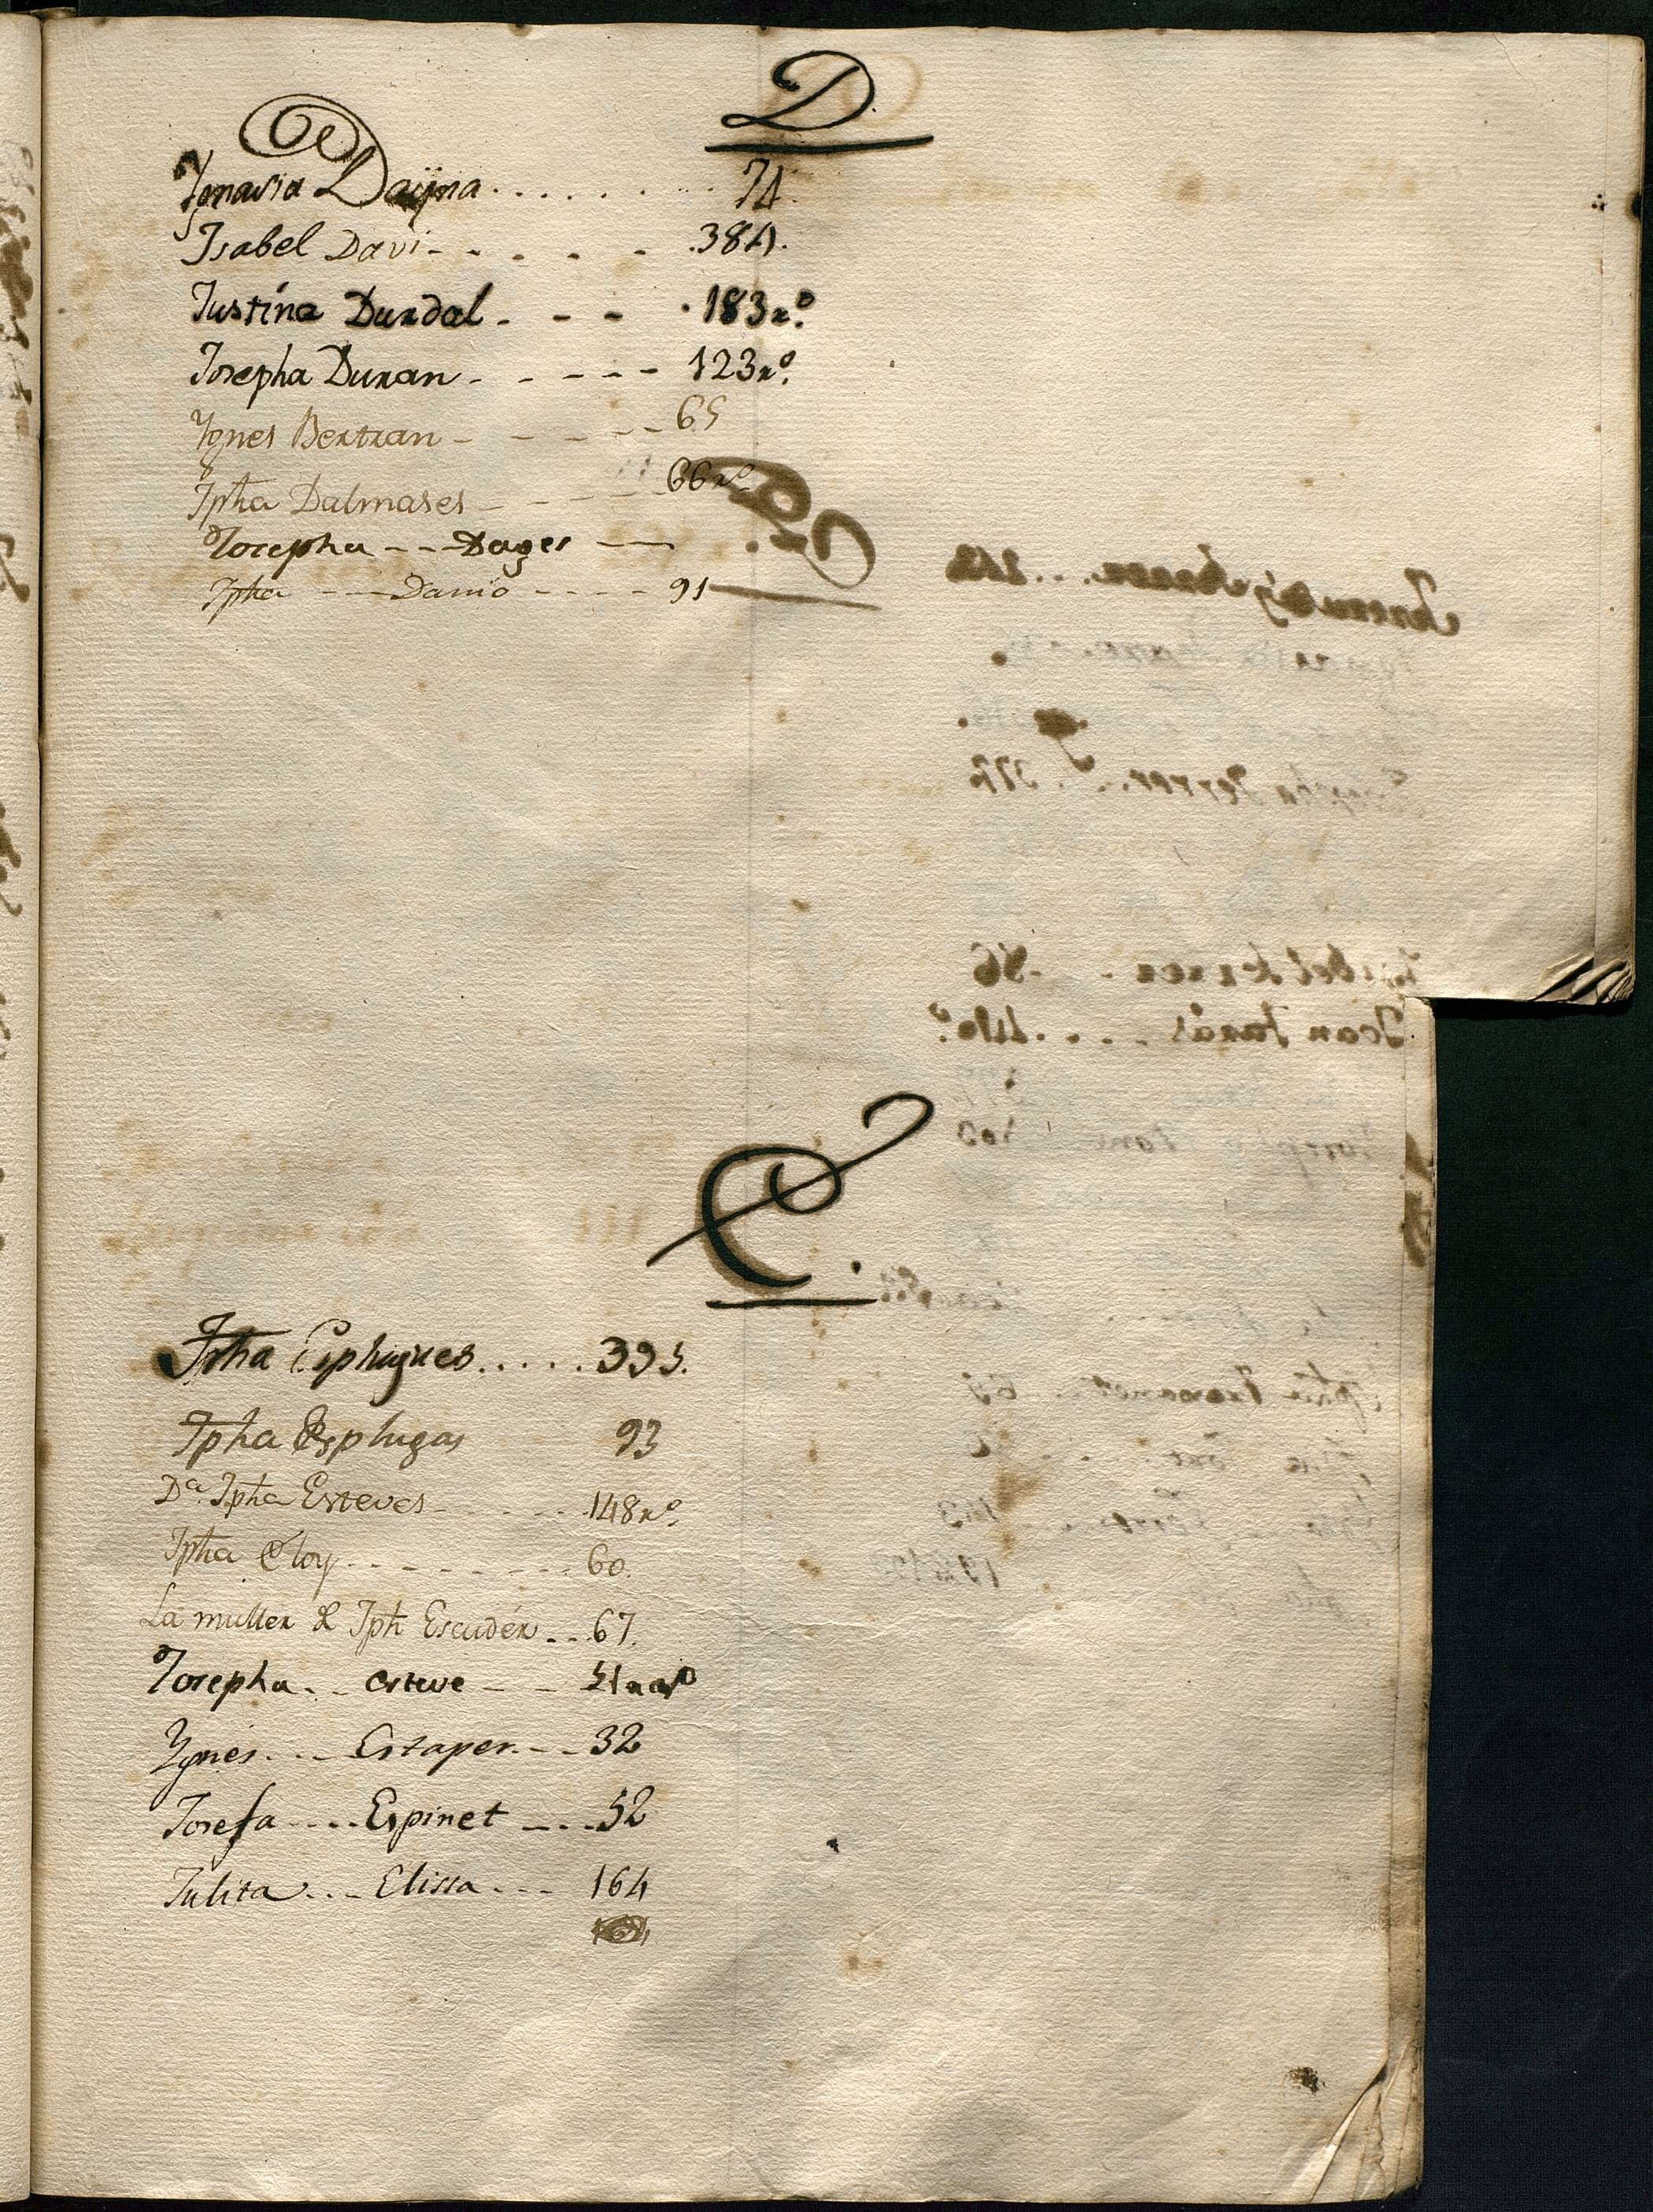 D.
Ignasia Daÿna . . . . . . . . 74.
Isabel Davi - - . . . - .384.
Iustina Durdal - - - . 183 ro.
Iosepha Duran - - - - - 123 ro.
Ygnes Bertran - - - - - - 65
Ipha Dalmases - - - - - 66 ro
Iosepha - - - Dages —
Ipha - - - Danió - - - - 91
E.
Ipha Esphugues . . . . . 395.
Ipha Esplugas 93
Da. Ipha Esteves - - - - - 148 ro.
Ipha Eloy - - - - - - - - 60.
La muller de Iph Escudér - - . 67.
Iosepha . - - esteve - - - 51
Ygnés . . - Estaper . - - 32
Iosefa - - . . Espinet - - . . 52
Iulita . . . - Elissa . - - - 164